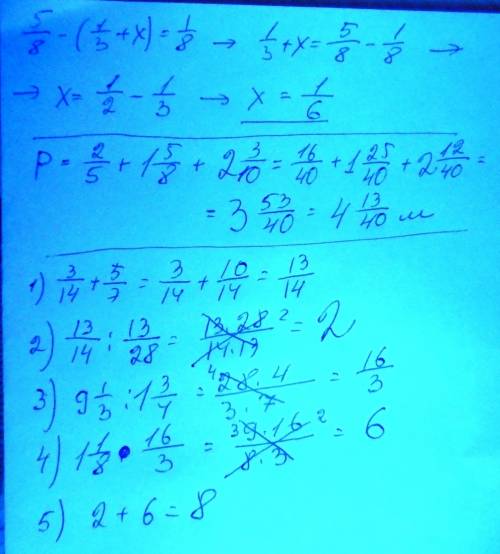 5/8 - (1/3 + x) = 1/8 → 1/3 + x = 5/8 - 1/8 →
→ x = 1/2 - 1/3 → x = 1/6
P = 2/5 + 1 5/8 + 2 3/10 = 16/40 + 1 25/40 + 2 12/40 =
= 3 53/40 = 4 13/40 м
1) 3/14 + 5/7 = 3/14 + 10/14 = 13/14
2) 13/14 : 13/28 = 13·28 2/14·13 = 2
3) 9 1/3 : 1 3/4 = 4 28·4/3·7 = 16/3
4) 1 1/8 · 16/3 = 3 9·16 2/8·3 = 6
5) 2 + 6 = 8